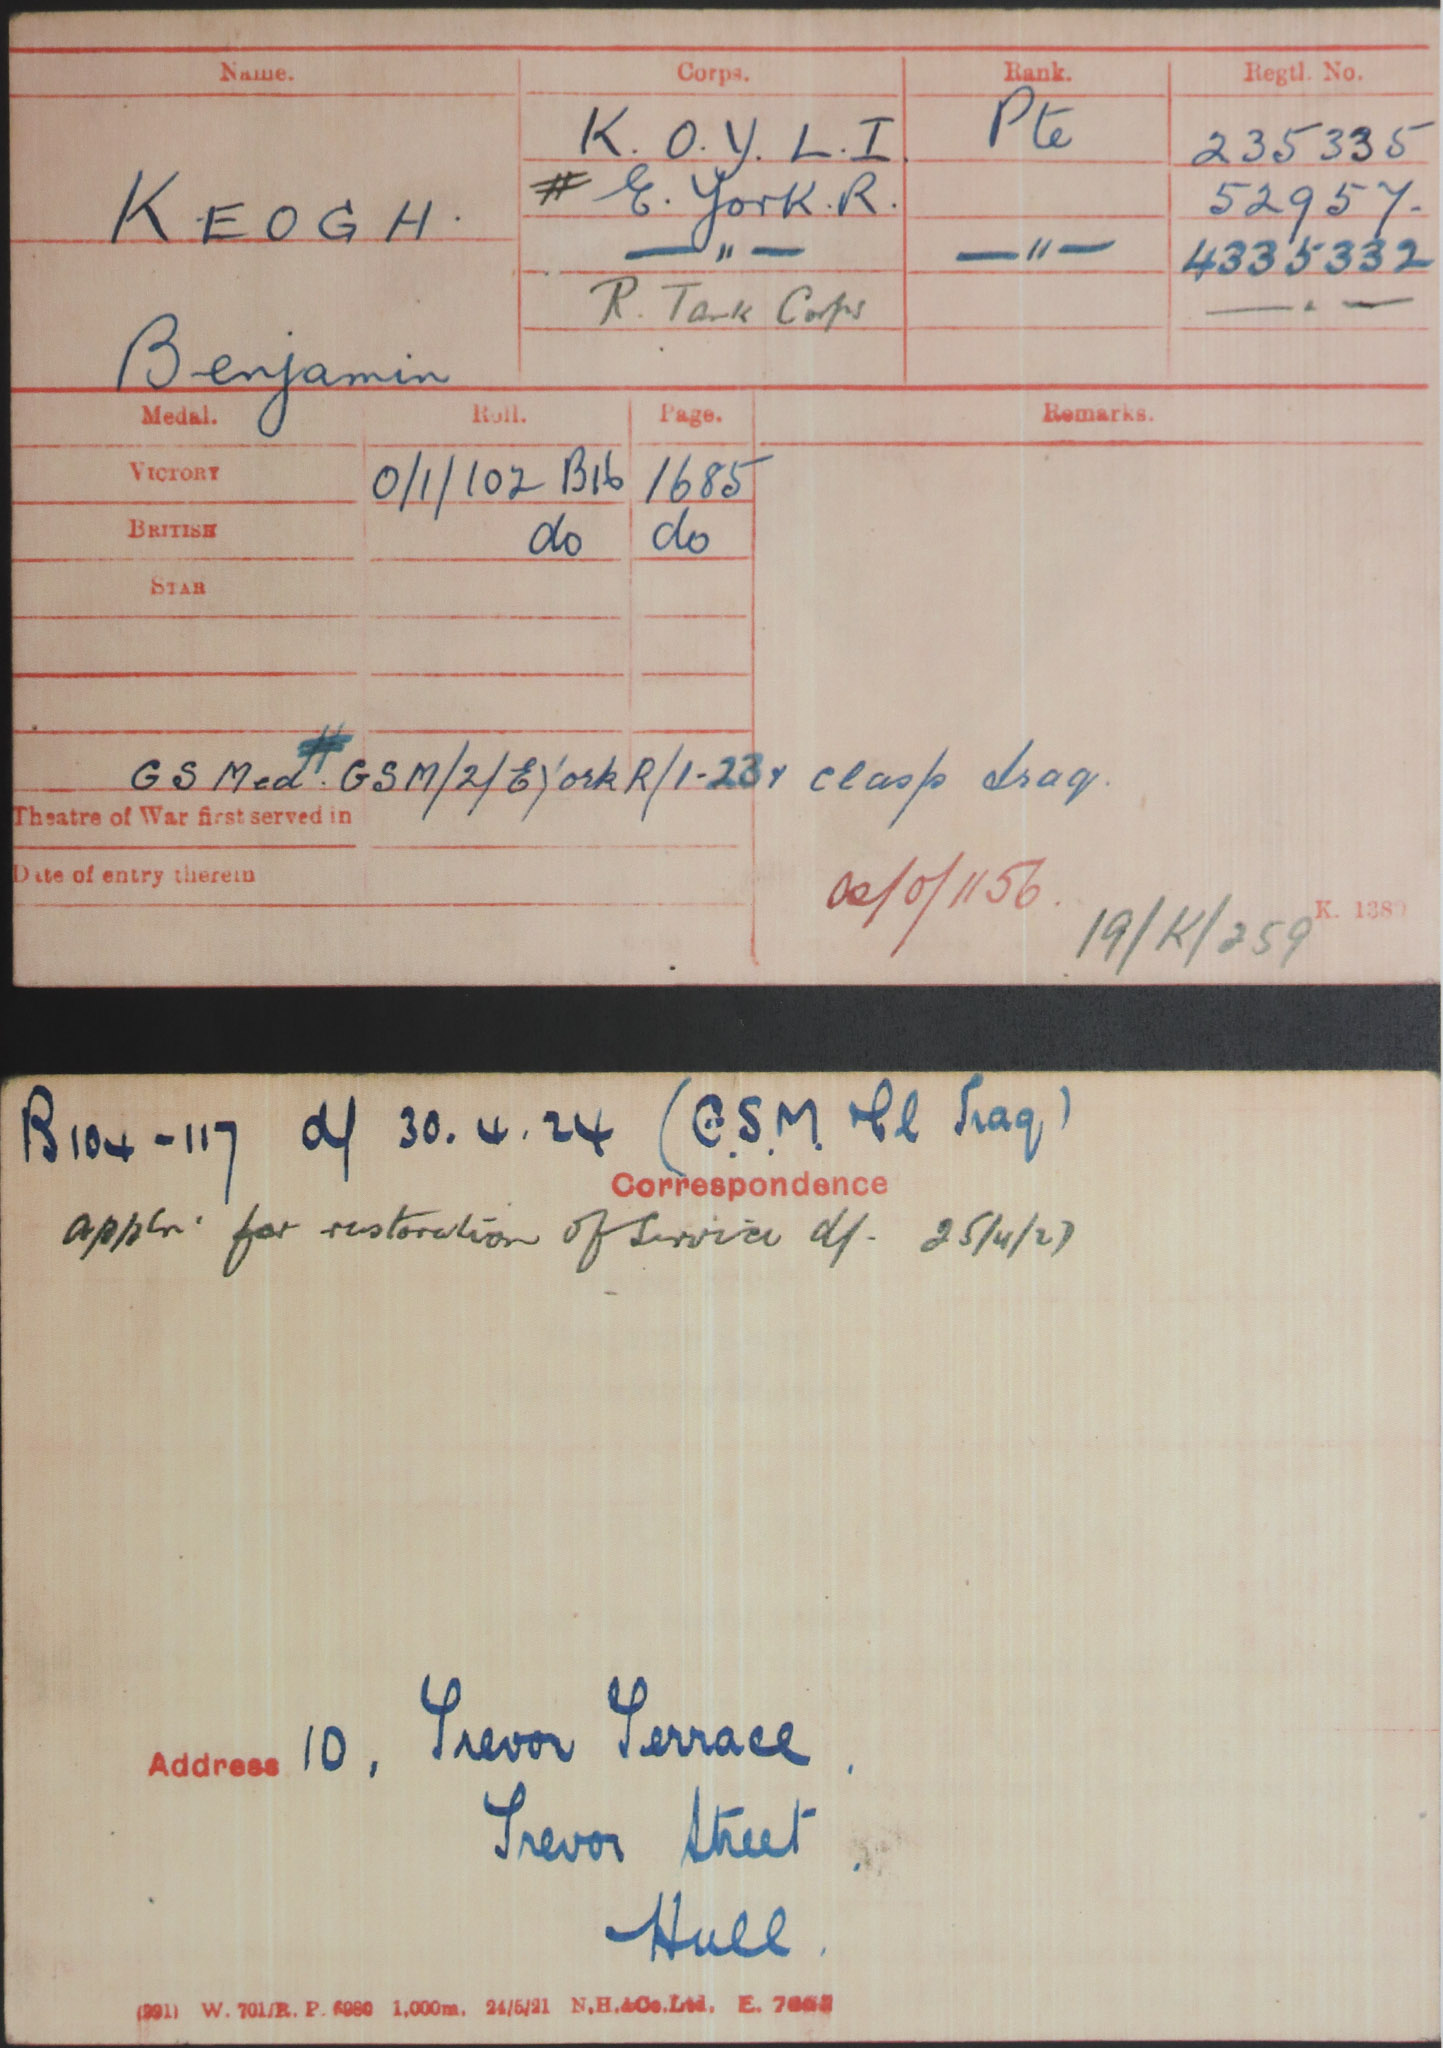 Name. Corps. Rank. Regtl. No.
K. O. Y. L. I. Pte 235335
KEOGH. # E. York. R. 52957.
— " — — " — 4335332
R. Tank Corps — " —
Benjamin
Medal. Roll. Page. Remarks.
VICTORY 0/1/102 B16 1685
BRITISH do do
STAR
GS Med. # GSM/2/E York R/1-23 clasp Iraq.
Theatre of War first served in
Date of entry therein
/0/1156.
19/K/259 K. 1380
B104-117 d/ 30.4.24 (G.S.M. & Cl Iraq)
Correspondence
appln. for restoration of Service d/- 25/4/27
Address 10, Trevor Terrace,
Trevor Street,
Hull.
(391) W. 701/R. P. 6980 1,000m. 24/5/21 N.H.&Co.Ltd. E.